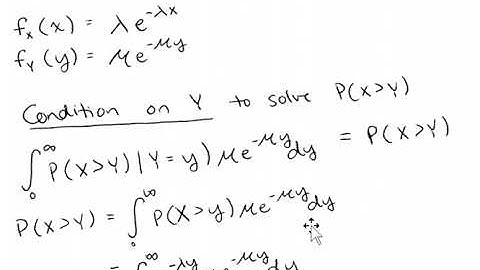 fₓ(x) = λe^{-λx}
f_Y(y) = μe^{-μy}
Condition on Y to solve P(X>Y)
∫₀^∞ P(X>Y) | Y=y) μe^{-μy} dy = P(X>Y)
P(X>Y) = ∫₀^∞ P(X>y) μe^{-μy} dy
= ∫^∞ e^{-λy} μe^{-μy} dy